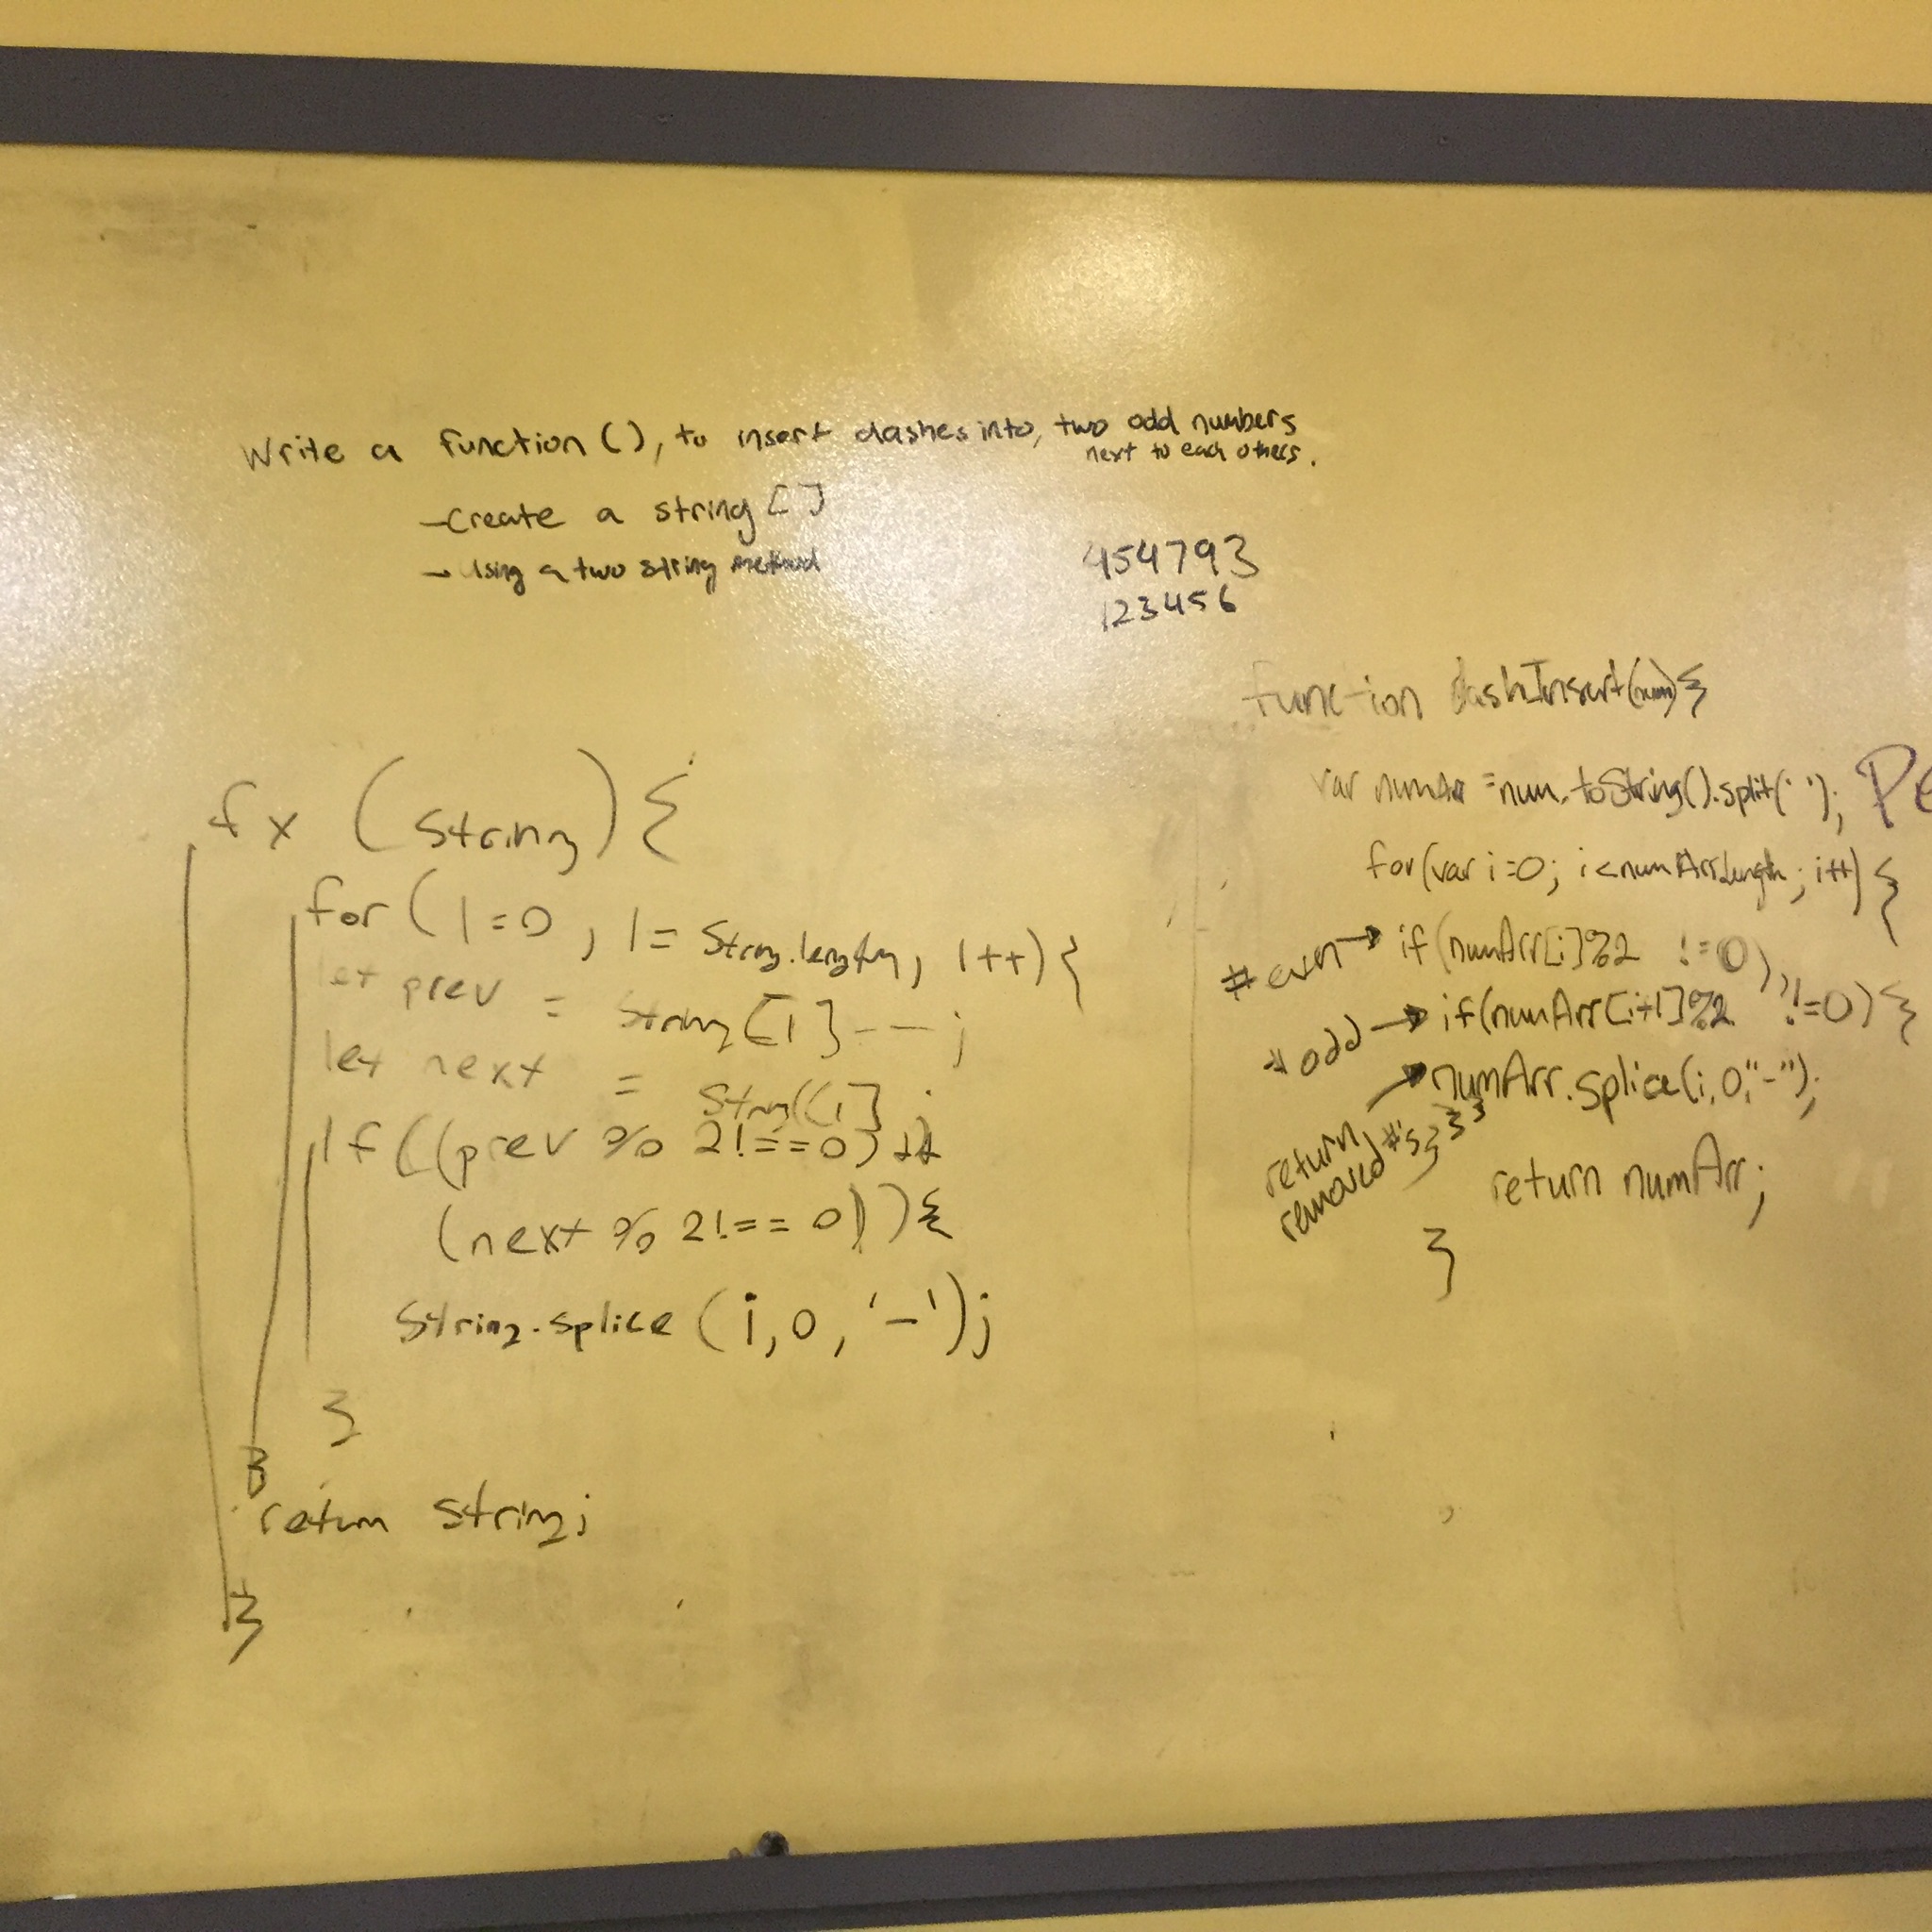 Write a function (), to insert dashes into, two odd numbers
next to each others.
-Create a string []
- Using a two string method
454793
123456
fx (string) {
for (i=0, i= string.length, i++) {
let prev = string[i]--;
let next = string[i];
if ((prev % 2!==0) &&
(next % 2!==0)) {
string.splice (i,0,'-');
}
}
return string;
}
function dashInsert(num){
var numArr = num.toString().split('');
for(var i=0; i<numArr.length; i++) {
#even → if(numArr[i]%2 != 0)
# odd → if(numArr[i+1]%2 != 0) {
numArr.splice(i,0,"-");
return
removed #'s } } }
return numArr;
}
PE